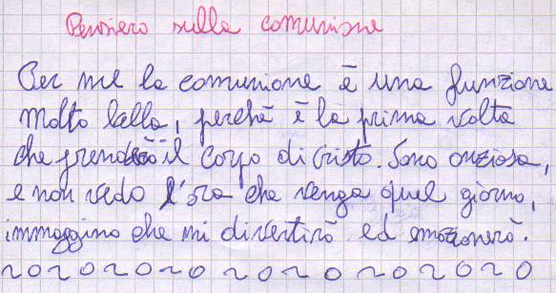 Pensiero sulla comunione
Per me la comunione è una funzione
molto bella, perché è la prima volta
che prenderò il corpo di cristo. Sono ansiosa,
e non vedo l'ora che venga quel giorno,
immaggino che mi divertirò ed emozionerò.